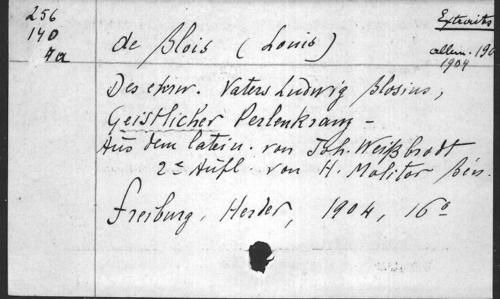 256
140
4a
de Blois (Louis)
Extraits
allem. 190
1904
Des ehrw. Vaters Ludwig Blosius,
Geistlicher Perlenkranz -
Aus dem latein. von Joh. Weißbrodt
2e Aufl. von H. Molitor Bén.
Freiburg, Herder, 1904, 16o